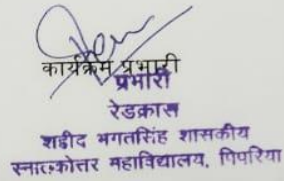 कार्यक्रम प्रभारी
प्रभारी
रेडक्रास
शहीद भगतसिंह शासकीय
स्नातकोत्तर महाविद्यालय, पिपरिया